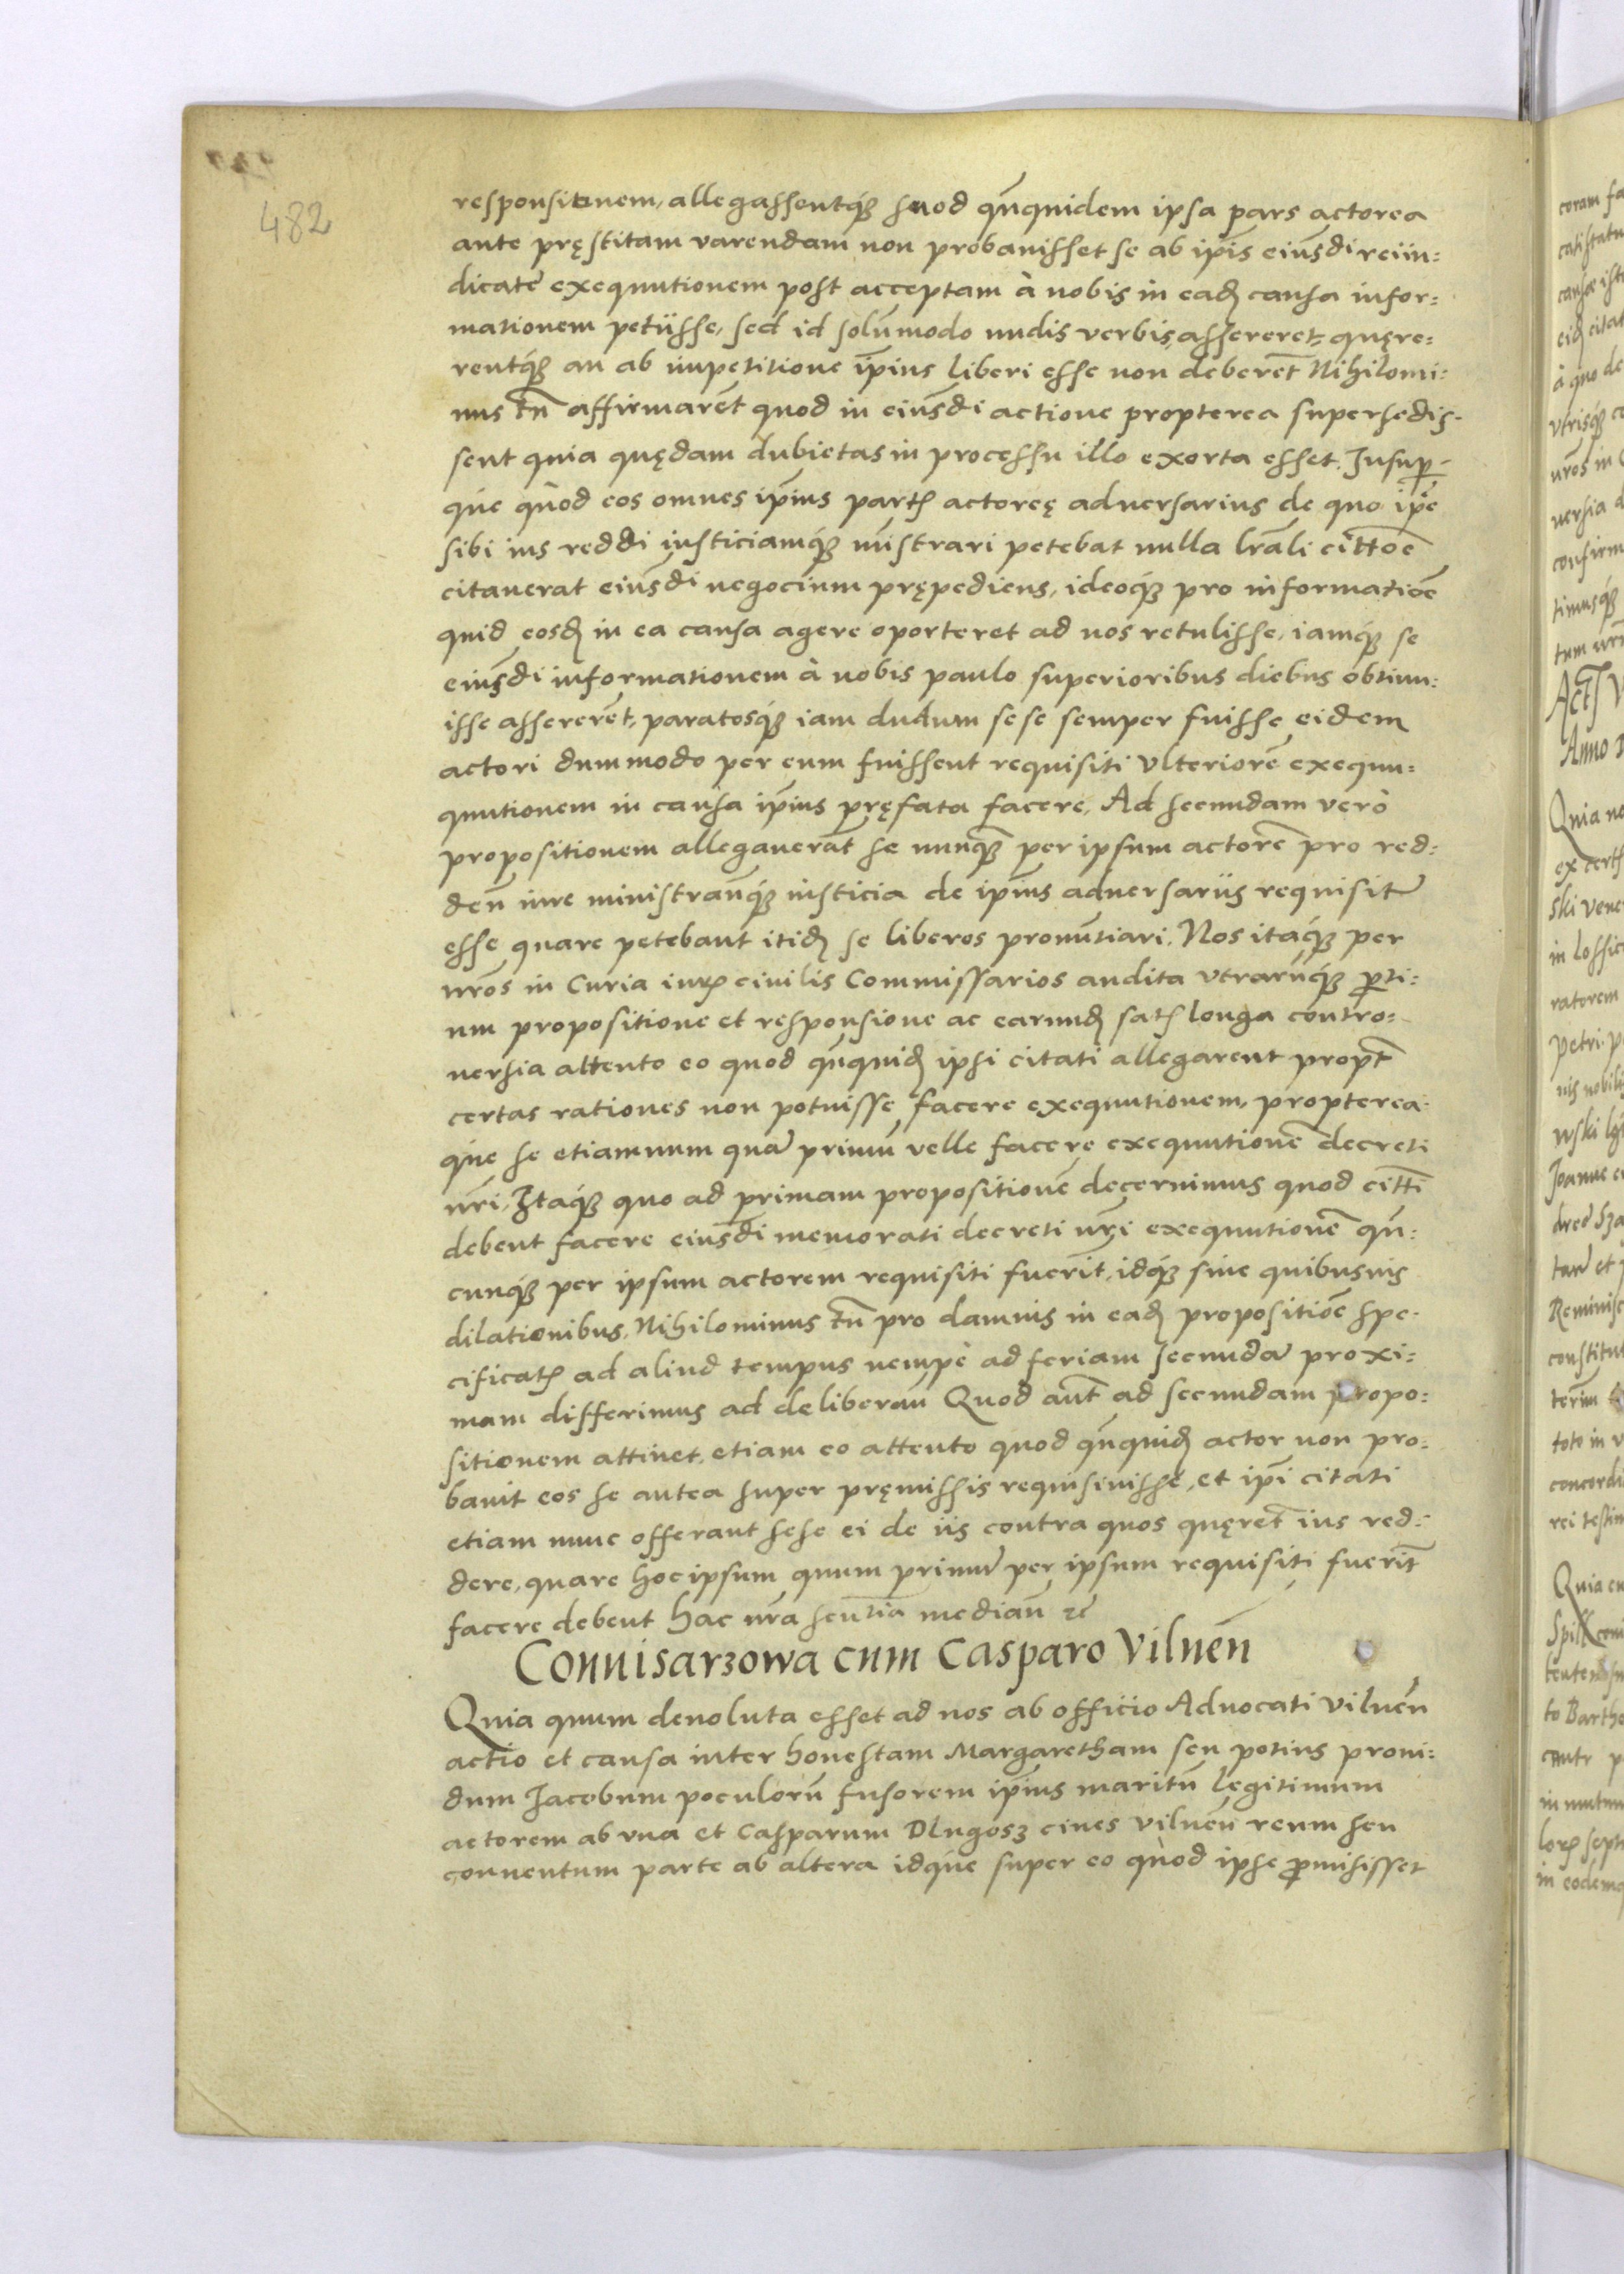 482
responsionem, allegassentq́ꝫ quod qñquidem ipsa pars actorea
ante pręstitam warendam non probauisset se ab ip̃is eiusdi reiiu=
dicatę exequutionem post acceptam à nobis in eadꝫ causa infor=
mationem petiisse, sed id solummodo nudis verbis, assereret, quęre=
rentq́ꝫ an ab impetitione ip̃ius liberi esse non deberẽt Nihilomi=
nus tñ affirmarẽt quod in eiusdi actione propterea supersedis=
sent quia quędam dubietas in processu illo exorta esset. Insup̱=
que quòd eos omnes ip̃ius partꝭ actoreę aduersarius de quo ip̃e
sibi ius reddi iusticiamq́ꝫ mĩstrari petebat nulla lr̃ali cittõe
citauerat eiusdi negocium prępediens, ideoq́ꝫ pro informatiõe
quid eosdꝫ in ea causa agere oporteret ad nos retulisse, iamq́ꝫ se
eiusdi informationem à nobis paulo superioribus diebus obtinu=
isse assererẽt, paratosq́ꝫ iam dudum sese semper fuisse eidem
actori dummodo per eum fuissent requisiti vlteriorẽ exequu=
quutionem in causa ip̃ius pręfata facere. Ad secundam verò
propositionem allegauerãt se nunq̃ꝫ per ipsum actorẽ pro red=
deñ iure ministrañq́ꝫ iusticia de ip̃ius aduersariis requisitꝭ
esse quare petebant itidꝫ se liberos pronũtiari. Nos itaq́ꝫ per
nr̃os in Curia iurꝭ ciuilis Commissarios audita vtrarũq́ꝫ p̱ti=
um propositione et responsione ac earundꝫ satꝭ longa contro=
uersia attento eo quod qñquidꝫ ipsi citati allegarent propt̃
certas rationes non potuisse facere exequutionem, propterea=
que se etiamnum quã primũ velle facere exequutionẽ decreti
nr̃i, Itaq́ꝫ quo ad primam propositionẽ decernimus quod citti
debent facere eiusdi memorati decreti nr̃i exequutionẽ qñ=
cunq́ꝫ per ipsum actorem requisiti fuerĩt, idq́ꝫ sine quibusuis
dilationibus. Nihilominus tñ pro damnis in eadꝫ propositiõe spe=
cificatꝭ ad aliud tempus nempè ad feriam secundã proxi=
mam differimus ad deliberañ Quod aũt ad secundam propo=
sitionem attinet, etiam eo attento quod qñquidꝫ actor non pro=
bauit eos se antea super pręmissis requisiuisse, et ip̃i citati
etiam nunc offerant sese ei de iis contra quos quęreret ius red=
dere, quare hoc ipsum quum primũ per ipsum requisiti fuerĩt
facere debent hac nr̃a sentẽtia median̄ ꝛc̃
Connisarzowa cum Casparo Vilneñ
Quia quum deuoluta esset ad nos ab officio Aduocati Vilneñ
actio et causa inter honestam Margaretham seu potius proui=
dum Jacobum poculorũ fusorem ip̃ius maritũ legitimum
actorem ab vna et Casparum Dlugosz ciues Vilneñ reum seu
conuentum parte ab altera idque super eo quòd ipse p̱misisset